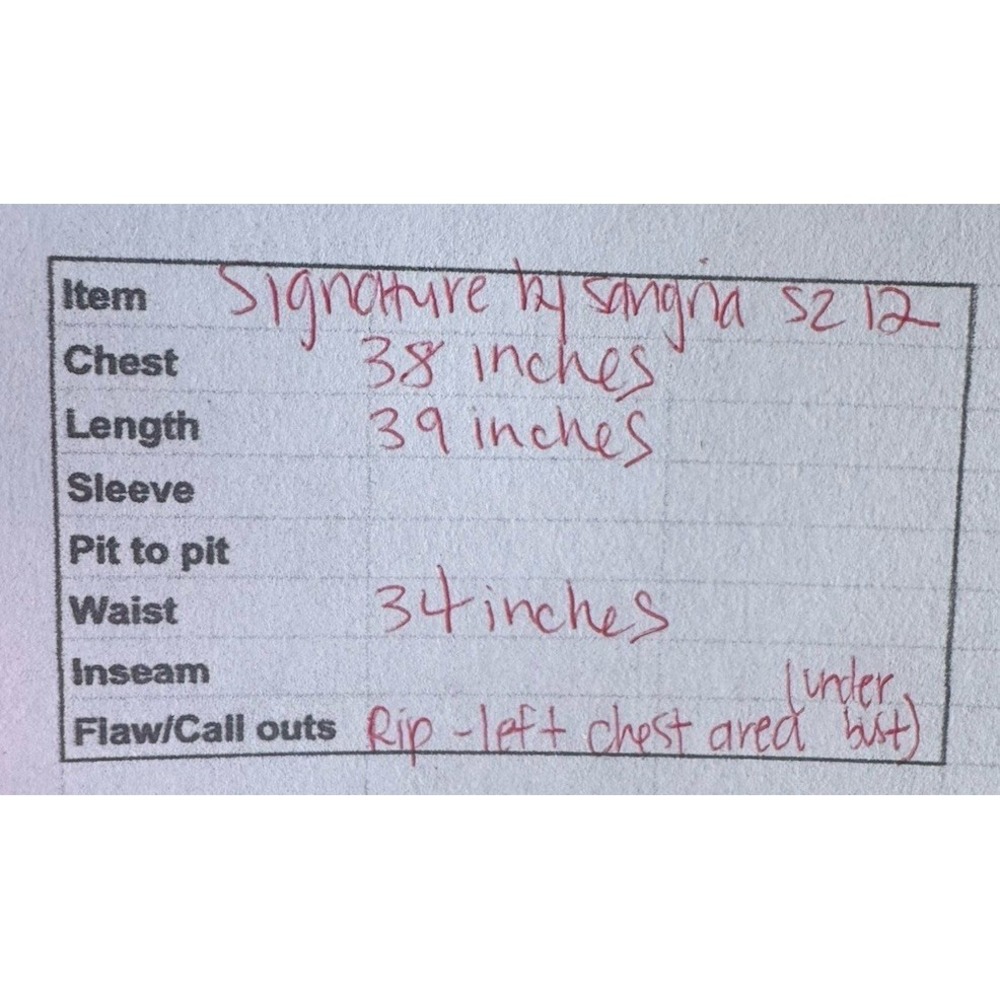 Item Signature by sangria SZ 12
Chest 38 inches
Length 39 inches
Sleeve
Pit to pit
Waist 34 inches
Inseam
Flaw/Call outs Rip - left chest area (under bust)